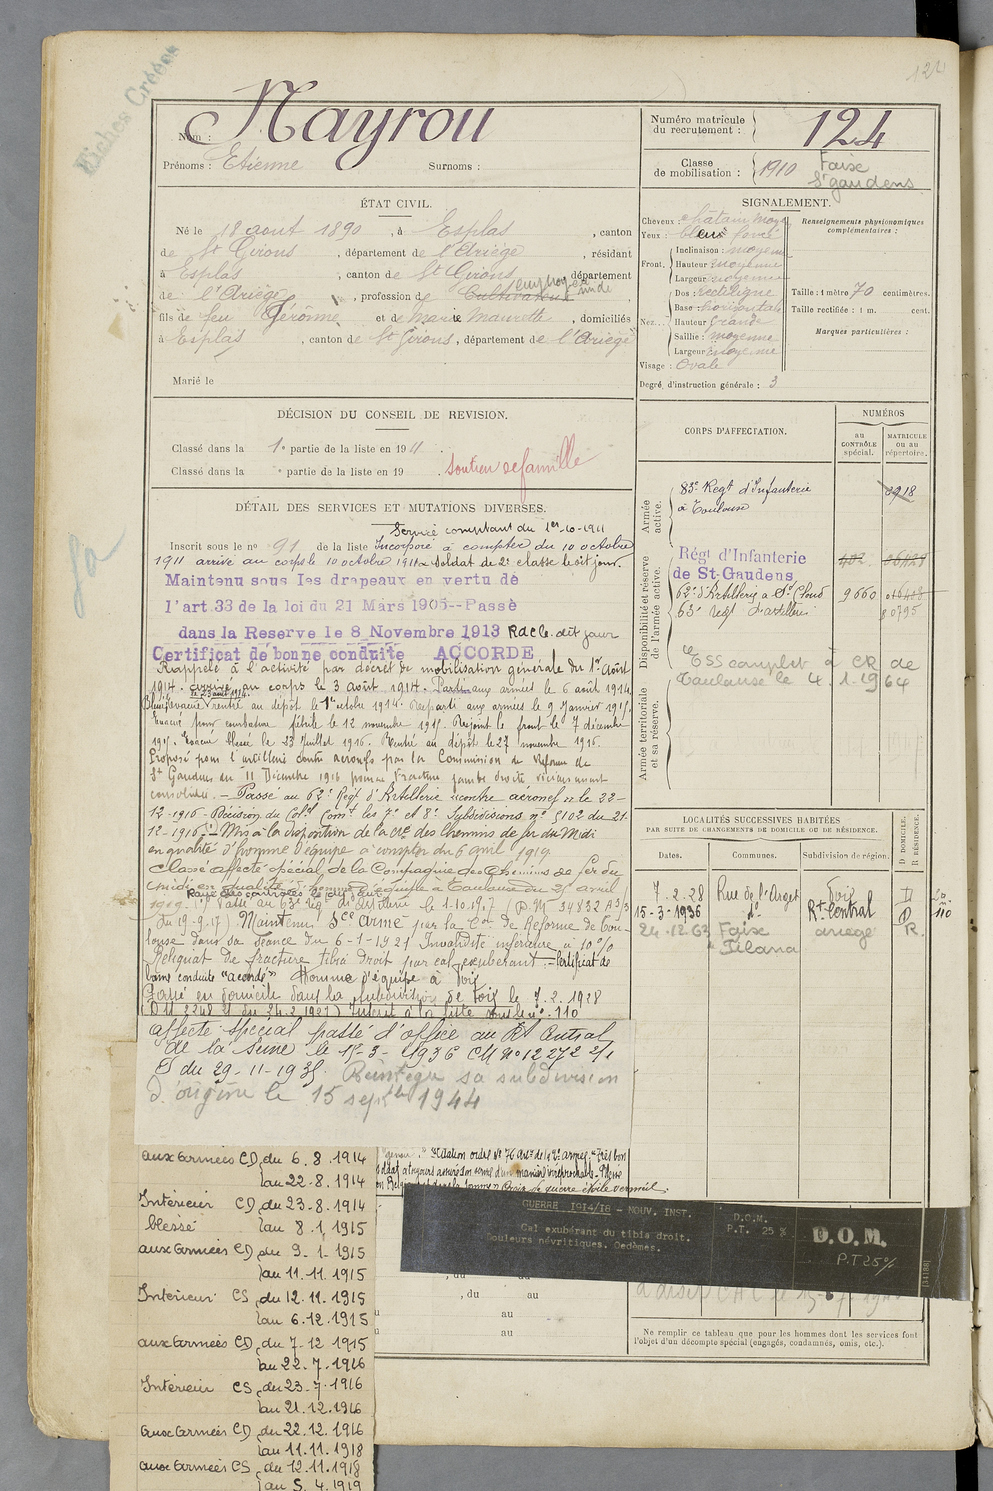 Fiches Créées
122
Nom : Nayrou
Prénoms : Etienne Surnoms :
Numéro matricule du recrutement : 124
Classe de mobilisation : 1910
Foix
St gaudens
ÉTAT CIVIL.
Né le 18 aout 1890, à Esplas, canton
de St Girons, département de l'Ariège, résidant
à Esplas, canton de St Girons, département
de l'Ariège, profession de Cultivateur employé
fils de feu Gérôme et de Marie Maurette, domiciliés
à Esplas, canton de St Girons, département de l'Ariège
Marié le
SIGNALEMENT.
Cheveux : châtain moyen
Yeux : bleus foncé
Front. Inclinaison : moyenne
Hauteur moyenne
Largeur moyenne
Nez. Dos : rectiligne
Base : horizontale
Hauteur Grande
Saillie : moyenne
Largeur moyenne
Visage : Ovale
Degré d'instruction générale : 3
Renseignements physionomiques complémentaires :
Taille : 1 mètre 70 centimètres.
Taille rectifiée : 1 m. cent.
Marques particulières :
DÉCISION DU CONSEIL DE REVISION.
Classé dans la 1e partie de la liste en 1911.
Classé dans la e partie de la liste en 19 .
soutien de famille
CORPS D'AFFECTATION.
NUMÉROS
au CONTRÔLE spécial.
MATRICULE ou au répertoire.
Armée active.
83e Regt d'Infanterie
à Toulouse
Disponibilité et réserve de l'armée active.
Régt d'Infanterie
de St-Gaudens
62e d'Artillerie à St Cloud 9660
63e Regt d'artillerie
Armée territoriale et sa réserve.
ESS complet à CR de
Toulouse le 4.1.1964
DÉTAIL DES SERVICES ET MUTATIONS DIVERSES.
Service comptant du 1er-10-1911
Inscrit sous le no 91 de la liste Incorporé à compter du 10 octobre
1911 arrivé au corps le 10 octobre 1911 Soldat de 2e classe le dit jour.
Maintenu sous les drapeaux en vertu de
l'art.33 de la loi du 21 Mars 1905--Passé
dans la Reserve le 8 Novembre 1913 Rdc le dit jour
Certificat de bonne conduite ACCORDE
Rappelé à l'activité par décret de mobilisation générale du 1er Août
1914. arrivé au corps le 3 août 1914. Parti aux armées le 6 août 1914
le 23 août 1914
Blessé évacué rentré au dépôt le 1er octobre 1914. Reparti aux armées le 9 Janvier 1915.
Evacué pour courbature fébrile le 12 novembre 1915. Rejoint le front le 7 décembre
1915. Evacué blessé le 23 Juillet 1916. Rentré au dépôt le 27 novembre 1916.
Proposé pour l'artillerie contre aéronefs par la Commission de Réforme de
St Gaudens du 11 Décembre 1916 pour Fracture jambe droite vicieusement
consolidée. – Passé au 62e Regt d'Artillerie contre aéronefs le 22-
12-1916 - Décision du Col Comt les 7e et 8e Subdivisions no 5102 du 21-
12-1916 – Mis à la disposition de la Cie des Chemins de fer du Midi
en qualité d'homme d'équipe à compter du 6 avril 1919.
Classé affecté spécial de la Compagnie des Chemins de fer du
Midi en qualité d'homme d'équipe à Toulouse du 25 avril
1919. Passé au 63e Regt d'artillerie le 1-10-1917 (D.M 34832 A 3/3
du 19.9.17) Maintenu Sce armé par la Con de Réforme de Tou-
louse dans sa séance du 6-1-1921 Invalidité inférieure à 10 %
Reliquat de fracture tibia droit par cal exubérant. – Certificat de
bonne conduite "accordé" Homme d'équipe à Foix
Passé en domicile dans la subdivision de Foix le 7.2.1928
affecté spécial passé d'office au Rt Central
de la Seine le 15-3-1936 CM No 12272 2/1
du 29-11-1935. Réintègre sa subdivision
d'origine le 15 septbre 1944
LOCALITÉS SUCCESSIVES HABITÉES
PAR SUITE DE CHANGEMENTS DE DOMICILE OU DE RÉSIDENCE.
Dates. Communes. Subdivision de région. D DOMICILE. R RÉSIDENCE.
7.2.28 Rue de l'Arget Foix D
15-3-1936 do Rt Central D
24.12.63 Foix ariege R.
110
aux armées CD du 6.8.1914
au 22.8.1914
Intérieur CD du 23.8.1914
blessé au 8.1.1915
aux armées CD du 9-1-1915
au 11.11.1915
Intérieur CS du 12.11.1915
au 6.12.1915
aux armées CD du 7-12-1915
au 22.7.1916
Intérieur CS du 23-7-1916
au 21.12.1916
aux armées CD du 22.12.1916
au 11.11.1918
aux armées CS du 12.11.1918
au 5.4.1919
Croix de guerre étoile vermeil.
GUERRE 1914/18 - NOUV. INST.
Cal exubérant du tibia droit.
Douleurs névritiques. Oedèmes.
D.O.M.
P.T. 25 %
D.O.M.
P.T 25%
, du au
au
au
Ne remplir ce tableau que pour les hommes dont les services font
l'objet d'un décompte spécial (engagés, condamnés, omis, etc.).